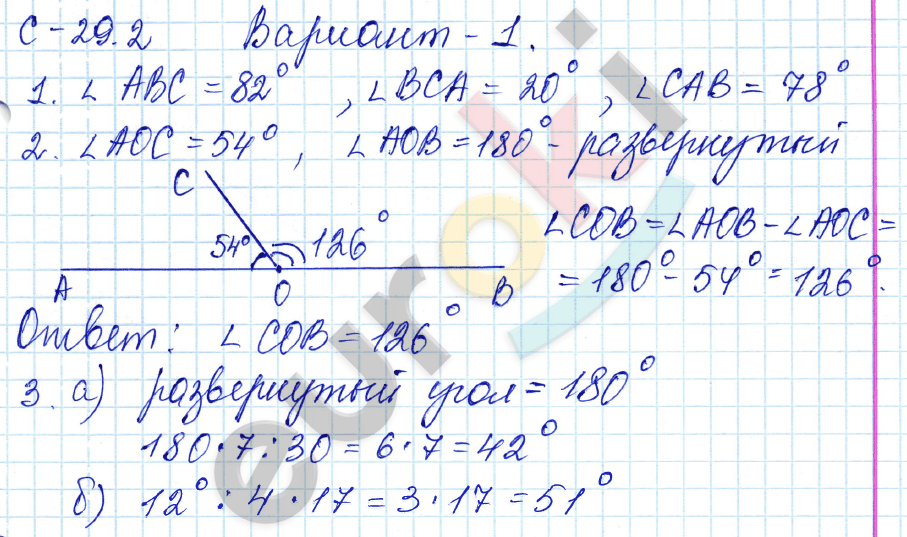 С-29.2 Вариант-1.
1. ∠ ABC = 82°, ∠BCA = 20°, ∠CAB = 78°
2. ∠AOC = 54°, ∠AOB = 180° - развернутый
C
54° 126°
A O B
∠COB = ∠AOB - ∠AOC =
= 180° - 54° = 126°.
Ответ: ∠ COB = 126°
3. а) развернутый угол = 180°
180·7:30 = 6·7 = 42°
б) 12° : 4 · 17 = 3·17 = 51°
euroki